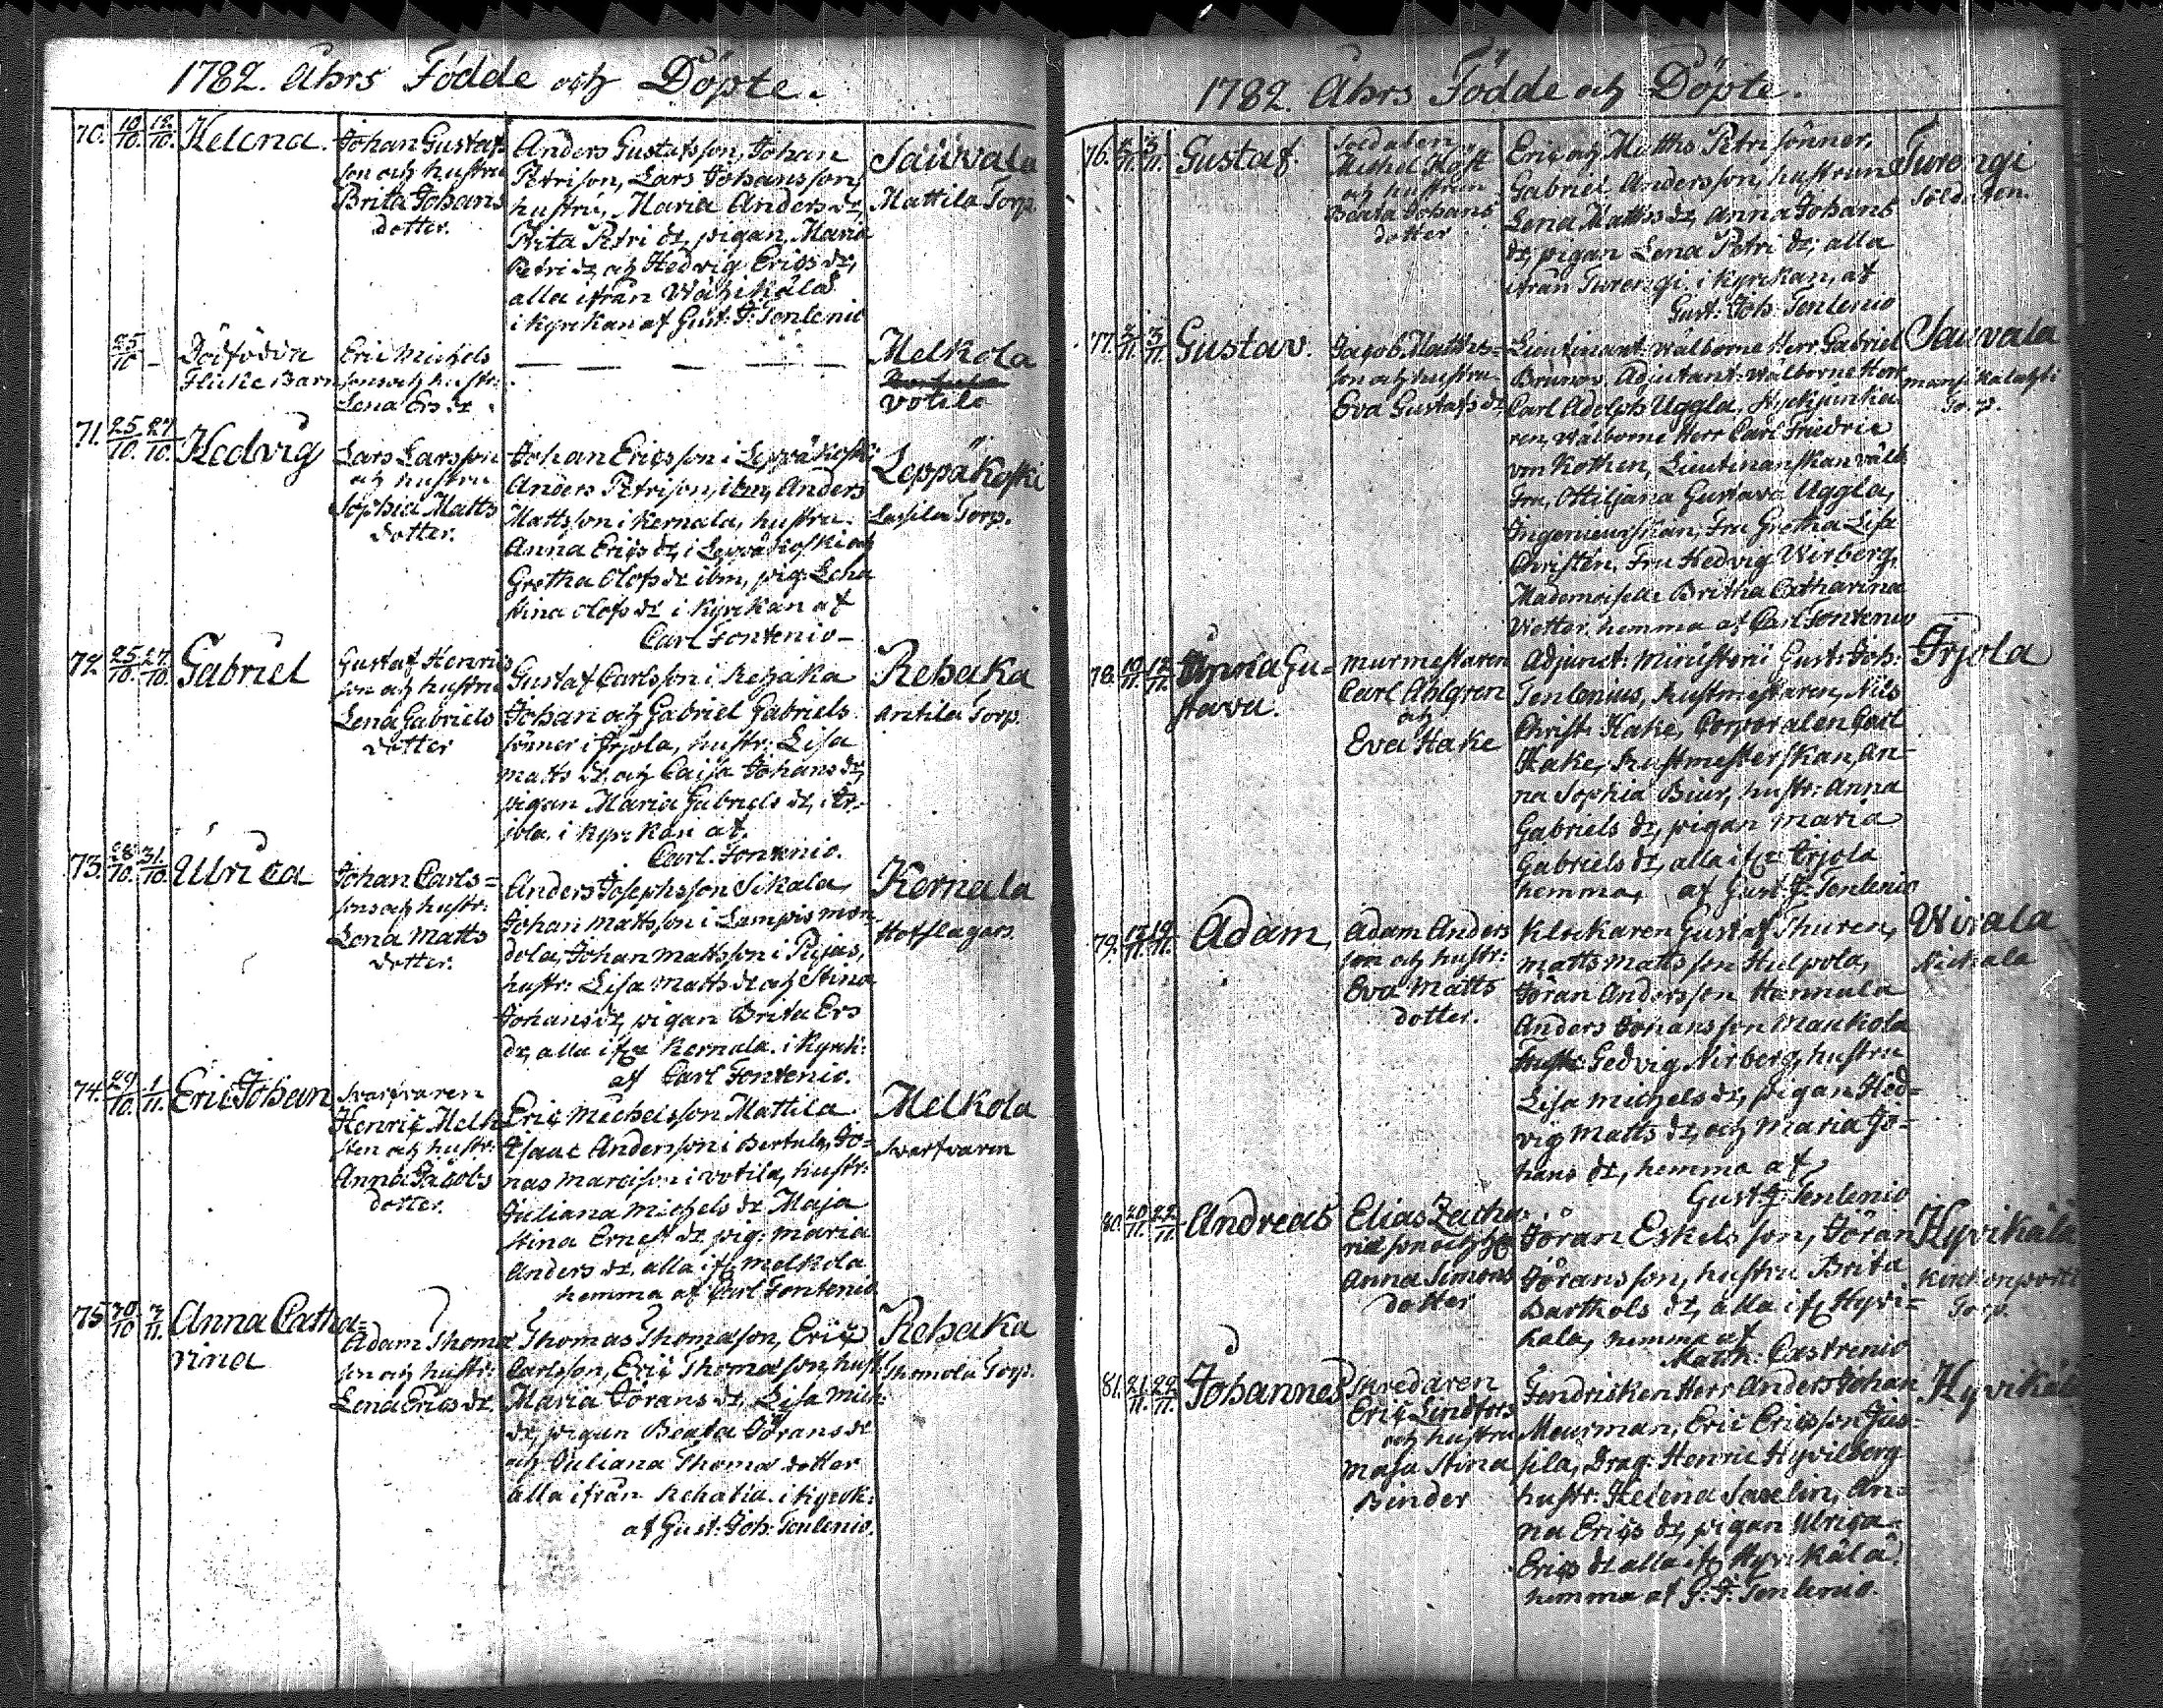 1782. Åhrs Födde och Döpte.
70. 10/10. 12/10. Helena. Johan Gustaf
son och hustru
Brita Johans
dotter.
Anders Gustafsson, Johan
Petrison, Lars Johansson,
hustru, Maria Anders dr,
Brita Petri dr, pigan Maria
Petri dr och Hedvig Erics dr,
alla ifrån
i Kyrkan af Gust: J: Tenlenio
Sauvala
Mattila Torp.
25/10 – Dödföddt
Flicke Barn
Eric Michels
son och hustr:
Lena Ers dr
Melkola
Votila
71. 25/10. 27/10. Hedvig
Lars Larsson
och hustru
Sophia Matts
dotter.
Johan Ericsson i Leppäkoski
Anders Petrison, ibm, Anders
Mattsson i Kernala, hustru
Anna Erics dr, i Leppäkoski och
Gretha Olofs dr ibm, pig: Lena
Stina Olofs dr i Kyrkan af
Carl Fontenio
Leppäkoski
Lassila Torp.
72 25/10. 27/10. Gabriel
Gustaf Henrics
son och hustru
Lena Gabriels
dotter
Gustaf Carlsson i Rehaka
Johan och Gabriel Gabriels
sönner i Irjola, hustr: Lisa
Matts dr och Caisa Johans dr,
pigan Maria Gabriels dr, i Ir-
jola. i Kyrkan af.
Carl. Fontenio.
Rehaka
Antila Torp.
73. 28/10. 31/10. Ulrica
Johan Carls=
son och hustr:
Lena Matts
dotter.
Anders Josephsson Sikala,
Johan Mattsson i Lampis
Johan Mattsson i
hustr: Lisa Matts dr och Stina
Johans dr, pigan Brita Ers
dr, alla ifr Kernala. i Kyrk:
af Carl Fontenio.
Kernala
Hofslagars.
74. 29/10. 1/11. Eric Johan
Svarfvaren
Henric Melk
sten och hustr:
Anna Jacobs
dotter.
Eric Michelsson Mattila
Isaac Anderson i Bertula, Jo-
nas i Votila, hustr:
Juliana Michels dr Maja
Stina Ernest dr pig: Maria
Anders dr. alla ifr Melkola
hemma af Carl Fontenio
Melkola
Svarfvaren
75 30/10 3/11. Anna Catha=
rina
Adam Thoma
son och hustr:
Lena Erics dr.
Thomas Thomasson, Eric
Carlsson, Eric Thomasson, hust
Maria Jörans dr, Lisa Mich:
dr, pigan Beata Jörans dr
och Juliana Thoma dotter
alla ifrån Rehaka. i Kyrk:
af Gust: Joh: Tenlenio.
Rehaka
Thomola Torp.
1782. Åhrs Födde och Döpte.
76. 3/11. Gustaf.
Soldaten
Michel
och hustrun
Beata Johans
dotter
Eric och Matths Petri sönner,
Gabriel Andersson, hustrun
Lena Matths dr, Anna Johans
dr, pigan Lena Petri dr, alla
ifrån Turengi. i Kyrkan, af
Gust: Joh: Tenlenio
Turengi
Soldaten.
77. 2/11. 3/11. Gustav.
Jacob Matths=
son och hustru
Eva Gustafs dr,
Lieutinant: Wälborne Herr Gabriel
Brunov, Adjutant: Wälborne Herr
Carl Adolph Uggla, Styckjunka
ren, Wälborne Herr Carl Friedric
von Kothen, Lieutinanskan välb
Fru, Ottiljana Gustava Uggla,
Ingenieurskan, Fru Gretha Lisa
Christen. Fru Hedvig Wirberg,
Mademoiselle Britha Catharina
Wetter. hemma af Carl Fontenio
Sauvala
Torp.
78. 10/11. 12/11. Anna Gu=
stava.
Murmestaren
Carl Ahlgren
och
Eva Hake
Adjunct: Ministerii Gust: Joh:
Tenlenius, Rustmestaren, Nils
Christ: Hake, Corporalen Carl
Hake, Rustmesterskan An-
na Sophia Biur, hustr: Anna
Gabriels dr, pigan Maria
Gabriels dr, alla ifr Irjola
hemma, af Gust: J: Tenlenio
Irjola
79. 17/11. 19/11. Adam,
Adam Anders
son och hustr:
Eva Matts
dotter.
Klockaren Gustaf Thuren,
Matts Mattsson Hulpola,
Jöran Andersson Hannula
Anders Johansson Maukola
Hedvig Nirberg, hustru
Lisa Michels dr, pigan Hed=
vig Matts dr, och Maria Jo=
hans dr, hemma af
Gust: J: Tenlenio
Wirala
Nickala
80. 20/11. 22/11. Andreas
Elias Zacha
rias son och
Anna Simons
dotter
Jöran Eskelsson, Jöran
Jöransson, hustru Brita
Barthols dr, alla ifr Hyvi=
kälä, hemma af
Matth: Castrenio
Hyvikälä
Torp.
81. 21/11. 22/11. Johannes
Skredaren
Eric Lindfors
och hustru
Maja Stina
Binder
Fendricken Herr Anders Johan
Meurman, Eric Ericsson Jus=
sila, Drag: Henric Hyvilberg
hustr: Helena Savelin, An=
na Erics dr, pigan Ulrica=
Erics dr alla ifr Hyvikälä.
hemma af G: J: Tenlenio.
Hyvikälä